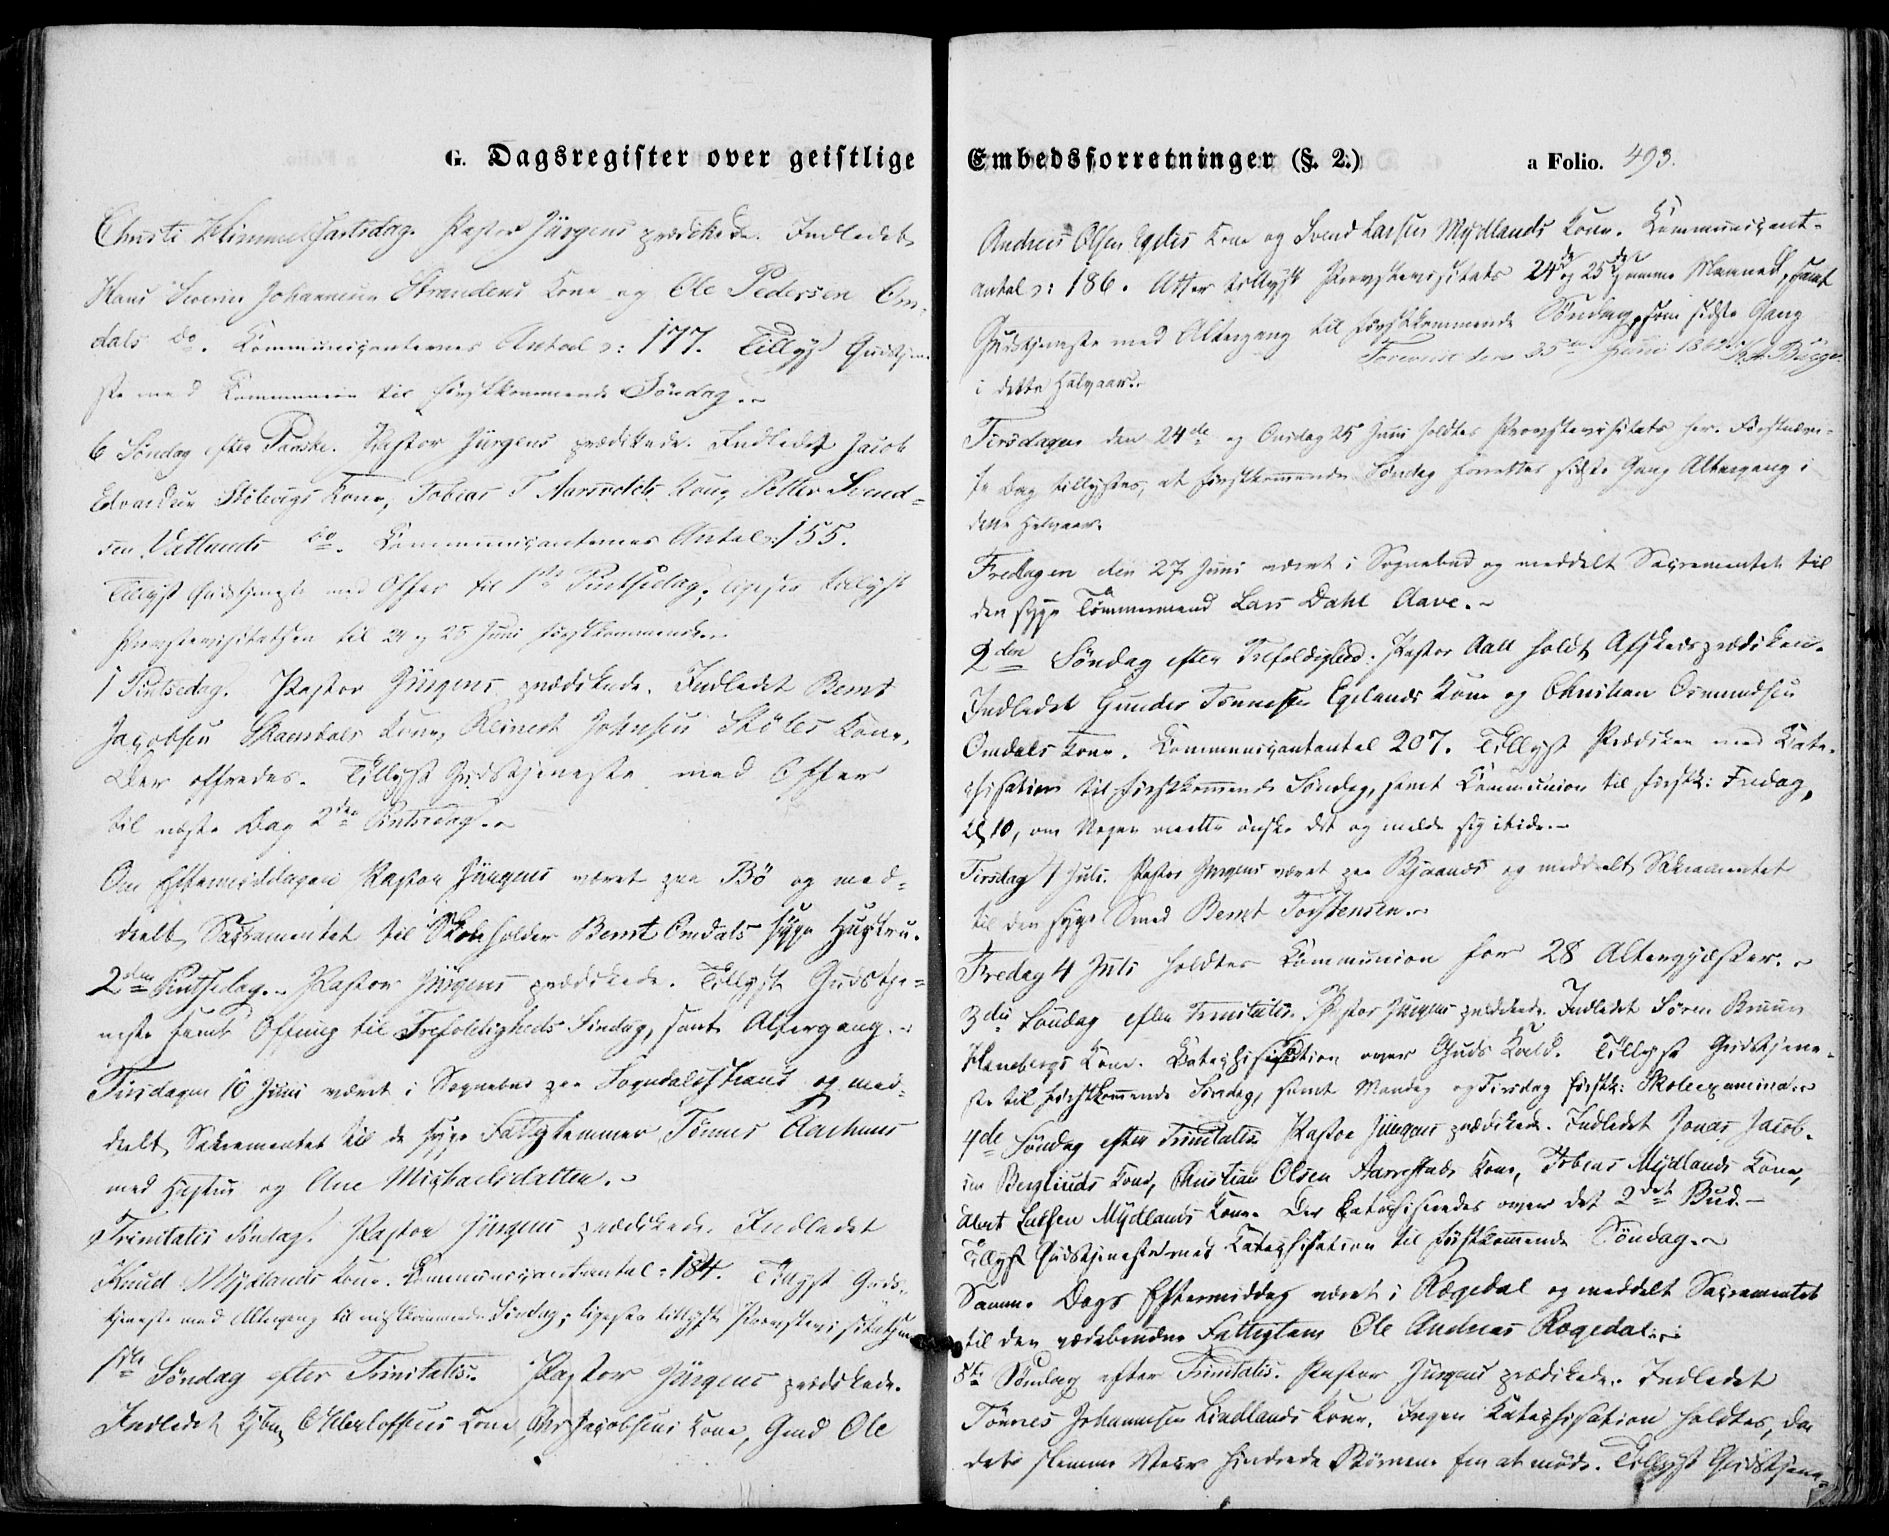 G. Dagsregister over geistlige
Christi Himmelfartsdag. Pastor Jürgens prædikede. Indledet
Hans Severin Johannesen Strandens Kone og Ole Pedersen Om-
dals do. Kommunicanternes Antal: 177. Tillyst Gudstjene-
ste med Kommunion til førstkommende Søndag.
6 Søndag efter Paaske. Pastor Jürgens prædikede. Indledet Jacob
Edvardsen Kone, Tobias T. Aarrestads Kone, Petter Svend-
sen Vatlands do. Kommunicanternes Antal: 155.
Tillyst Gudstjeneste med Offer til 1ste Pintsedag, ligesom tillyst
Provstevisitatsen til 24 og 25 Juni førstkommende.
1 Pintsedag. Pastor Jürgens prædikede. Indledet Bernt
Jacobsen Kone, Reinert Johnsen Støles Kone.
Der offredes. Tillyst Gudstjeneste med Offer
til næste Dag 2den Pintsedag.
Om Eftermiddagen Pastor Jürgens været paa Bø og med-
deelt Sacramentet til Skoleholder Bernt Omdals syge Hustru.
2den Pintsedag. Pastor Jürgens prædikede. Tillyst Gudstje-
neste samt Offring til Trefoldigheds Søndag, samt Altergang.
Tirsdagen 10 Juni været i Sognebud paa Sogndalsstrand og med-
deelt Sakramentet til de syge Fattiglemmer Tønnes Aarhuus
med Hustru og Ane Michaelsdatter.
Trinitatis Søndag. Pastor Jürgens prædikede. Indledet
Knud Mydlands Kone. Kommunicantantal: 184. Tillyst Guds-
tjeneste med Altergang til næstkommende Søndag; ligesaa tillyst Provstevisitatsen
1ste Søndag efter Trinitatis. Pastor Jürgens prædikede.
Indledet Kone, Jacobsens Kone, Gmd Ole
Embedsforretninger (§. 2.) a Folio. 493.
Andreas Olsen Egelis Kone og Svend Larsen Mydlands Kone. Kommunicant-
antal: 186. Atter tillyst Provstevisitats 24de og 25de samme Maaned, samt
Gudstjeneste med Altergang til førstkommende Søndag, som sidste Gang
i dette Halvaar.
Foreviist den 25de Juni 1862. Bugge
Tirsdagen den 24de og Onsdag 25 Juni holdtes Provstevisitats her. Førstnævn-
te Dag tillystes, at førstkommende Søndag forrettes sidste Gang Altergang i
dette Halvaar.
Fredagen den 27 Juni været i Sognebud og meddelt Sacramentet til
den syge Tømmermand Lars Dahl Aave.
2den Søndag efter Trefoldighed. Pastor Aall holdt Afskedsprædiken.
Indledet Gunder Tønnesen Egelands Kone og Christian Osmundsen
Omdals Kone. Kommunicantantal 207. Tillyst Prædiken med Kate-
chisation til førstkommende Søndag, samt Kommunion til førstk: Fredag,
Kl 10, om Nogen maatte ønske det og melde sig itide.
Tirsdag 1 Juli. Pastor Jürgens været paa Bjaanæs og meddeelt Sakramentet
til den syge Smed Bernt Torstensen.
Fredag 4 Juli holdtes Communion for 28 Altergjæster.
3die Søndag efter Trinitatis. Pastor Jürgens prædikede. Indledet Søren Bruun
Kone. Katechisation over Guds Kald. Tillyst Gudstjene-
ste til førstkommende Søndag, samt Mandag og Tirsdag førstk: Skoleexamina.
4de Søndag efter Trinitatis. Pastor Jürgens prædikede. Indledet Jonas Jacob-
sen Berglunds Kone, Christian Olsen Aarrestads Kone, Tobias Mydlands Kone,
Larsen Mydlands Kone. Der katechiseredes over det 2det Bud.
Tillyst Gudstjeneste med Katechisation til førstkommende Søndag.
Samme Dags Eftermiddag været i Rægedal og meddelt Sacramentet
til den Fattiglem Ole Andreas Rægedal.
5te Søndag efter Trinitatis. Pastor Jürgens prædikede. Indledet
Tønnes Johannesen Lindlands Kone. Ingen Katechisation holdtes, da
det slemme Veir hindrede Børnene fra at møde. Tillyst Gudstjene-